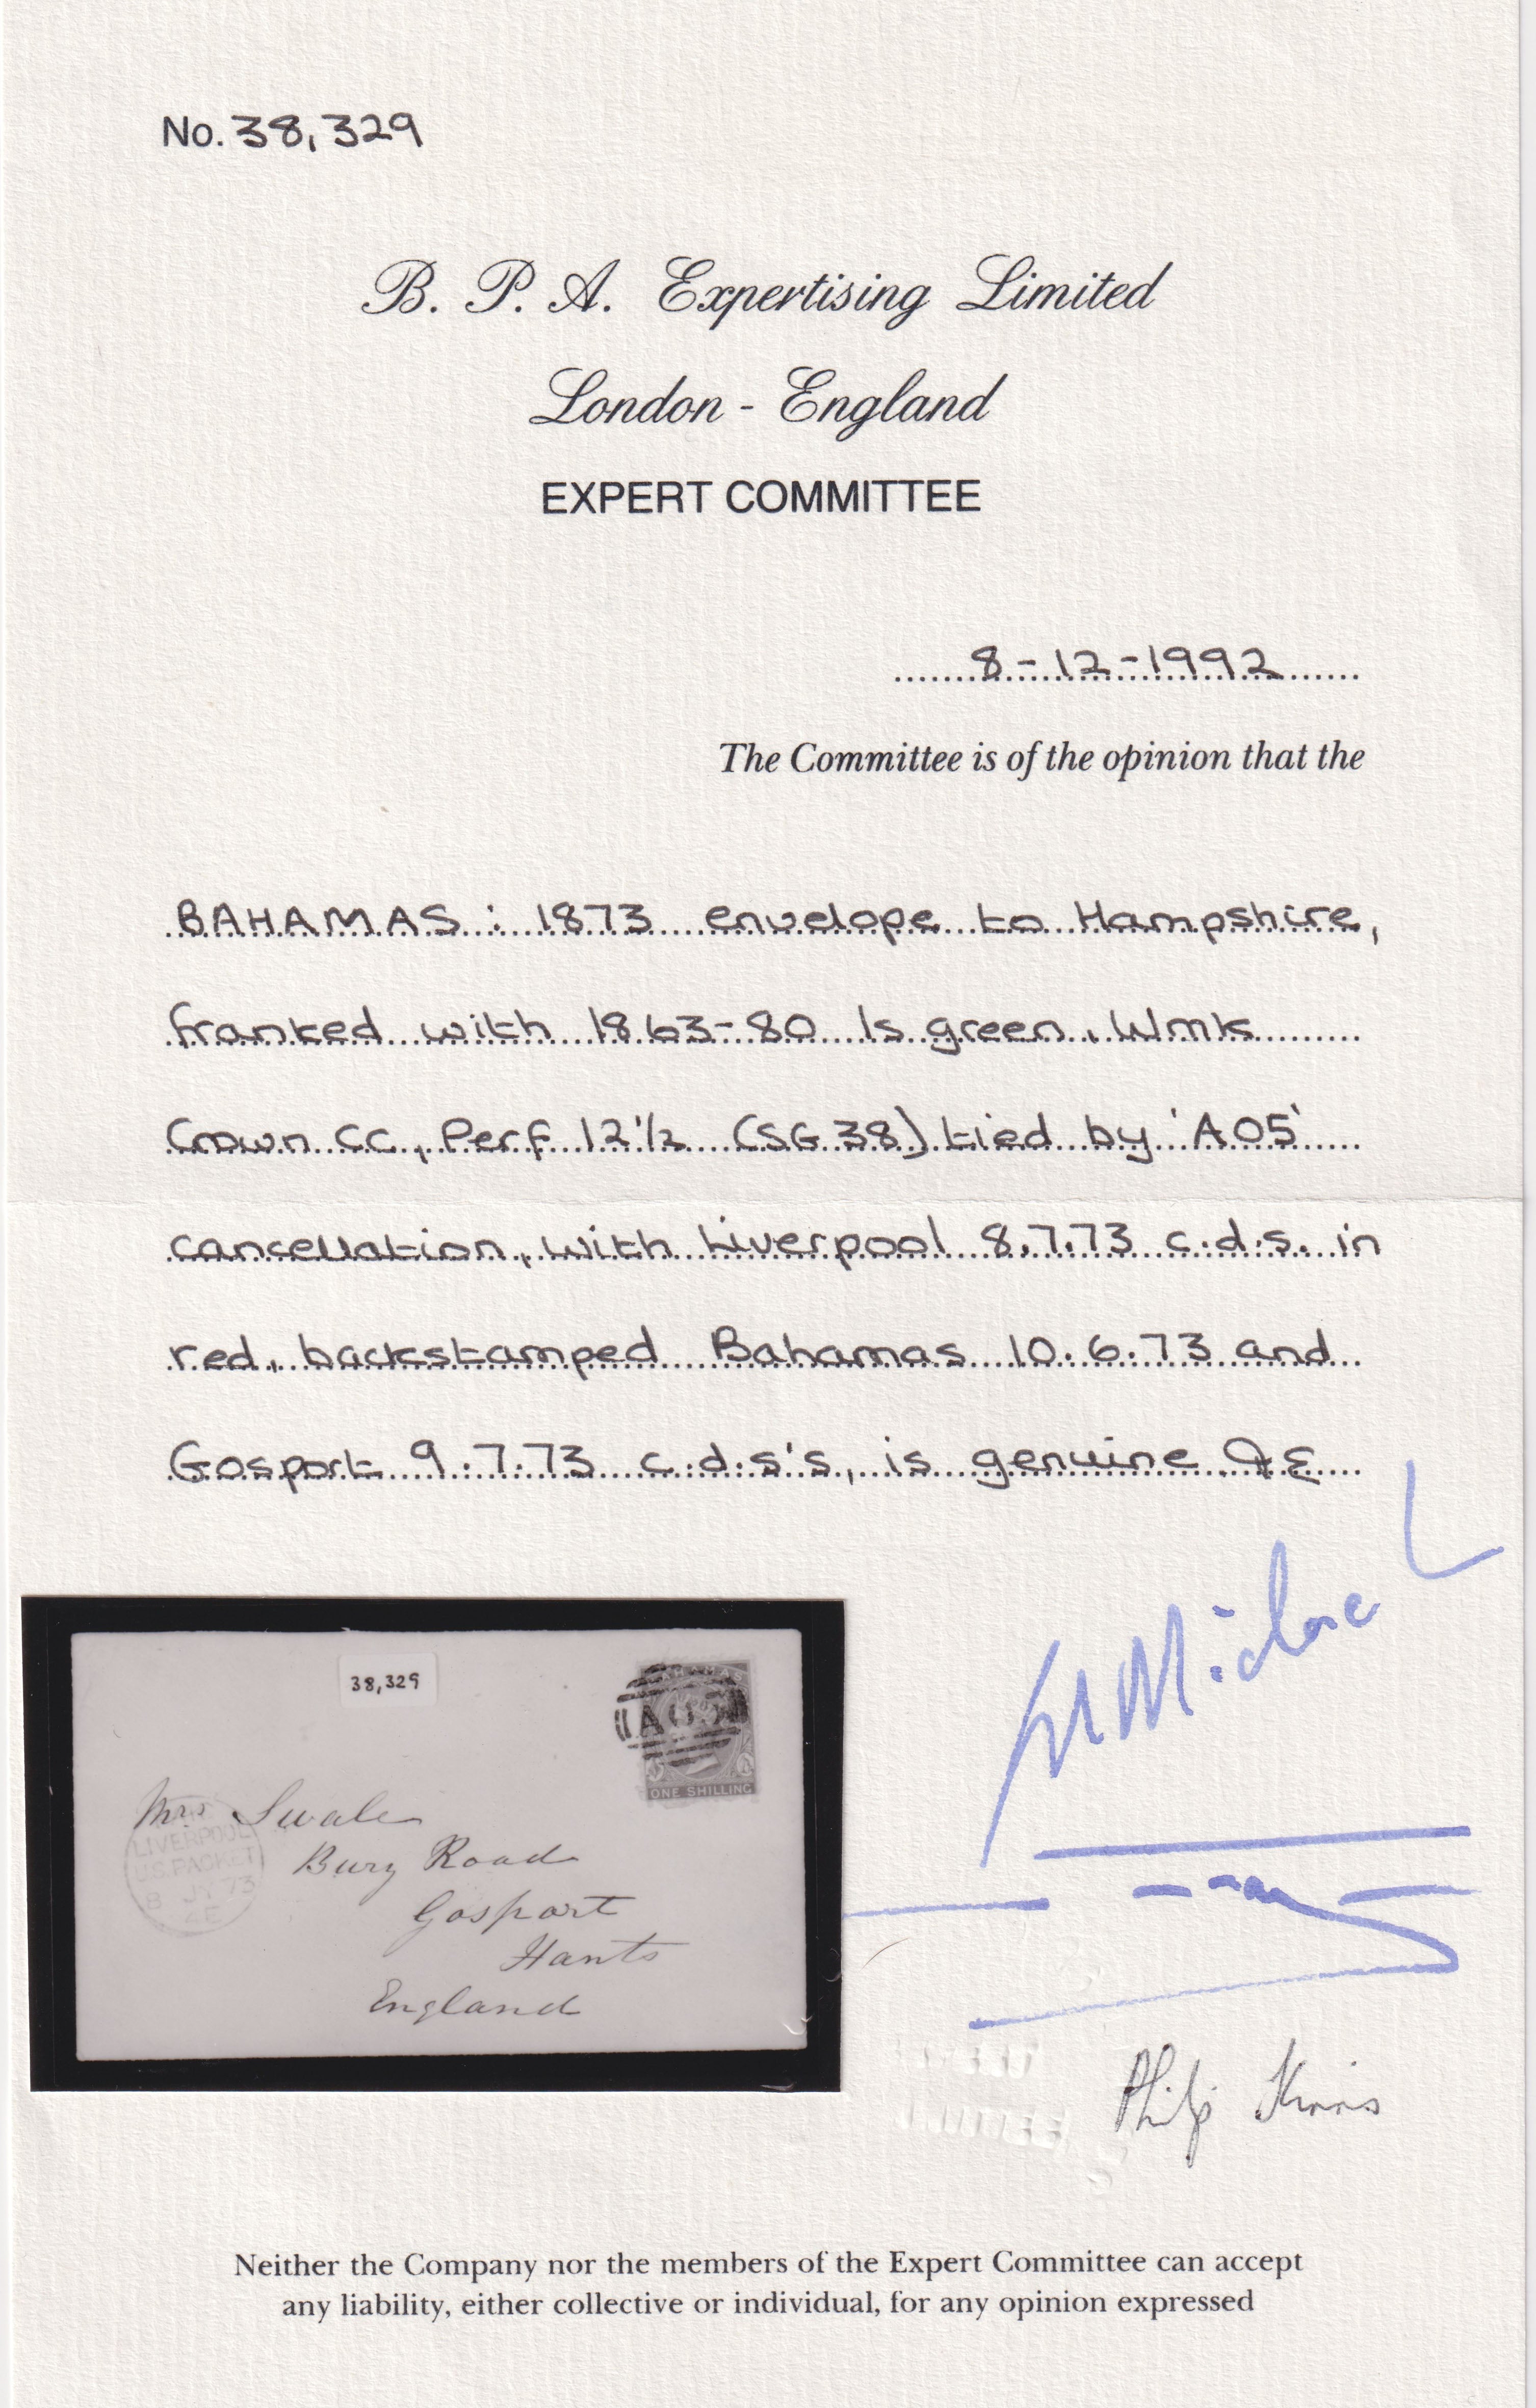 No. 38,329
B. P. A. Expertising Limited
London - England
EXPERT COMMITTEE
8-12-1992
The Committee is of the opinion that the
BAHAMAS : 1873 envelope to Hampshire,
franked with 1863-80 1s green, Wmk
Crown CC, Perf 12½ (SG 38) tied by 'A05'
cancellation, with Liverpool 8.7.73 c.d.s. in
red, backstamped Bahamas 10.6.73 and
Gosport 9.7.73 c.d.s's, is genuine
38,329
BAHAMAS
A05
ONE SHILLING
Mrs Swale
Bury Road
Gosport
Hants
England
LIVERPOOL
U.S. PACKET
8 JY 73
4E
Philip
Neither the Company nor the members of the Expert Committee can accept
any liability, either collective or individual, for any opinion expressed